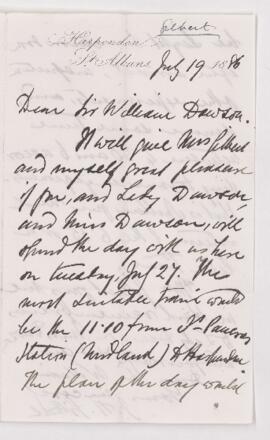 Gilbert
Harpenden,
St Albans.
July 19 1886
Dear Sir William Dawson.
It will give Mrs Gilbert
and myself great pleasure
if you, and Lady Dawson,
and Miss Dawson, will
spend the day with us here
on Tuesday, July 27. The
most suitable train would
be the 11.10 from St Pancras
Station (Midland) to Harpenden
The plan of the day would